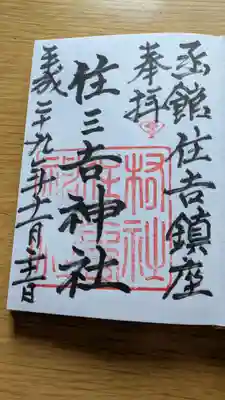 函館住吉鎮座
奉拝
住三吉神社
平成二十九年十二月三十一日
村社